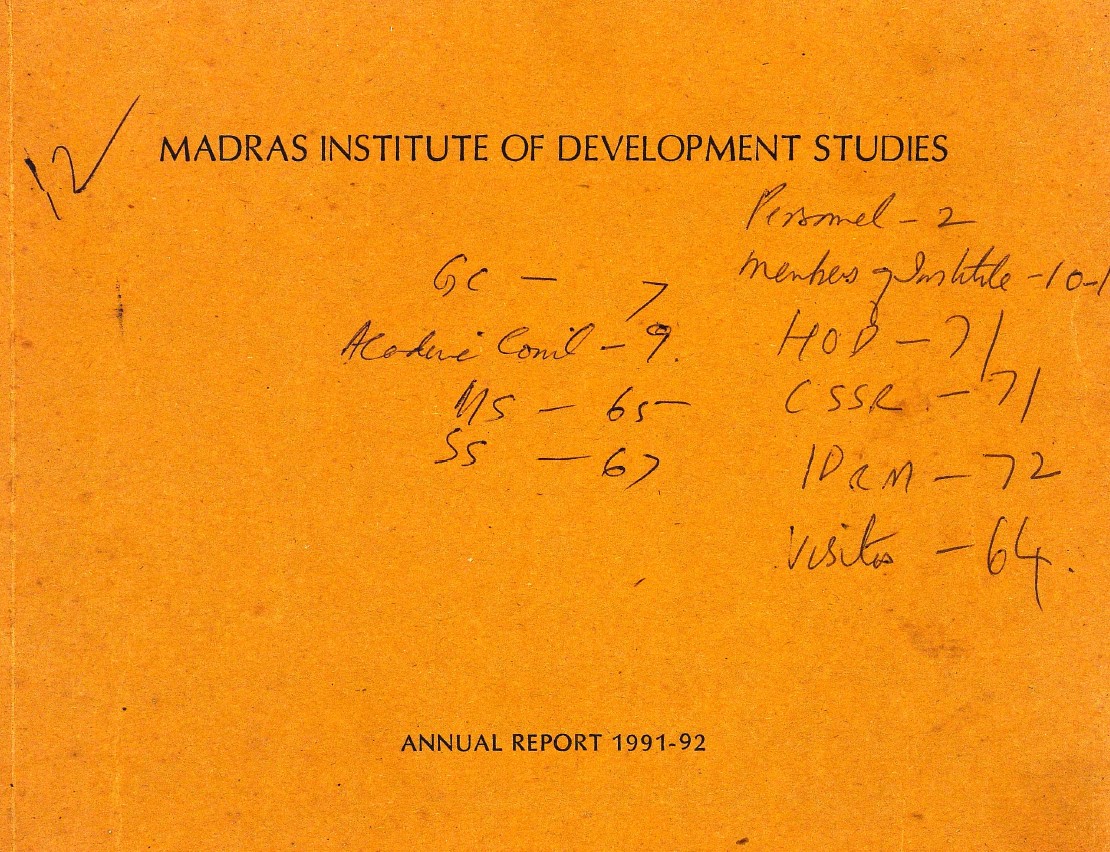 12
MADRAS INSTITUTE OF DEVELOPMENT STUDIES
Personnel - 2
Members of Institute - 10-1
GC - 7
Academic Concil - 9.
HOD - 71
MS - 65
CSSR - 71
SS - 67
IDRM - 72
Visitos - 64.
ANNUAL REPORT 1991-92